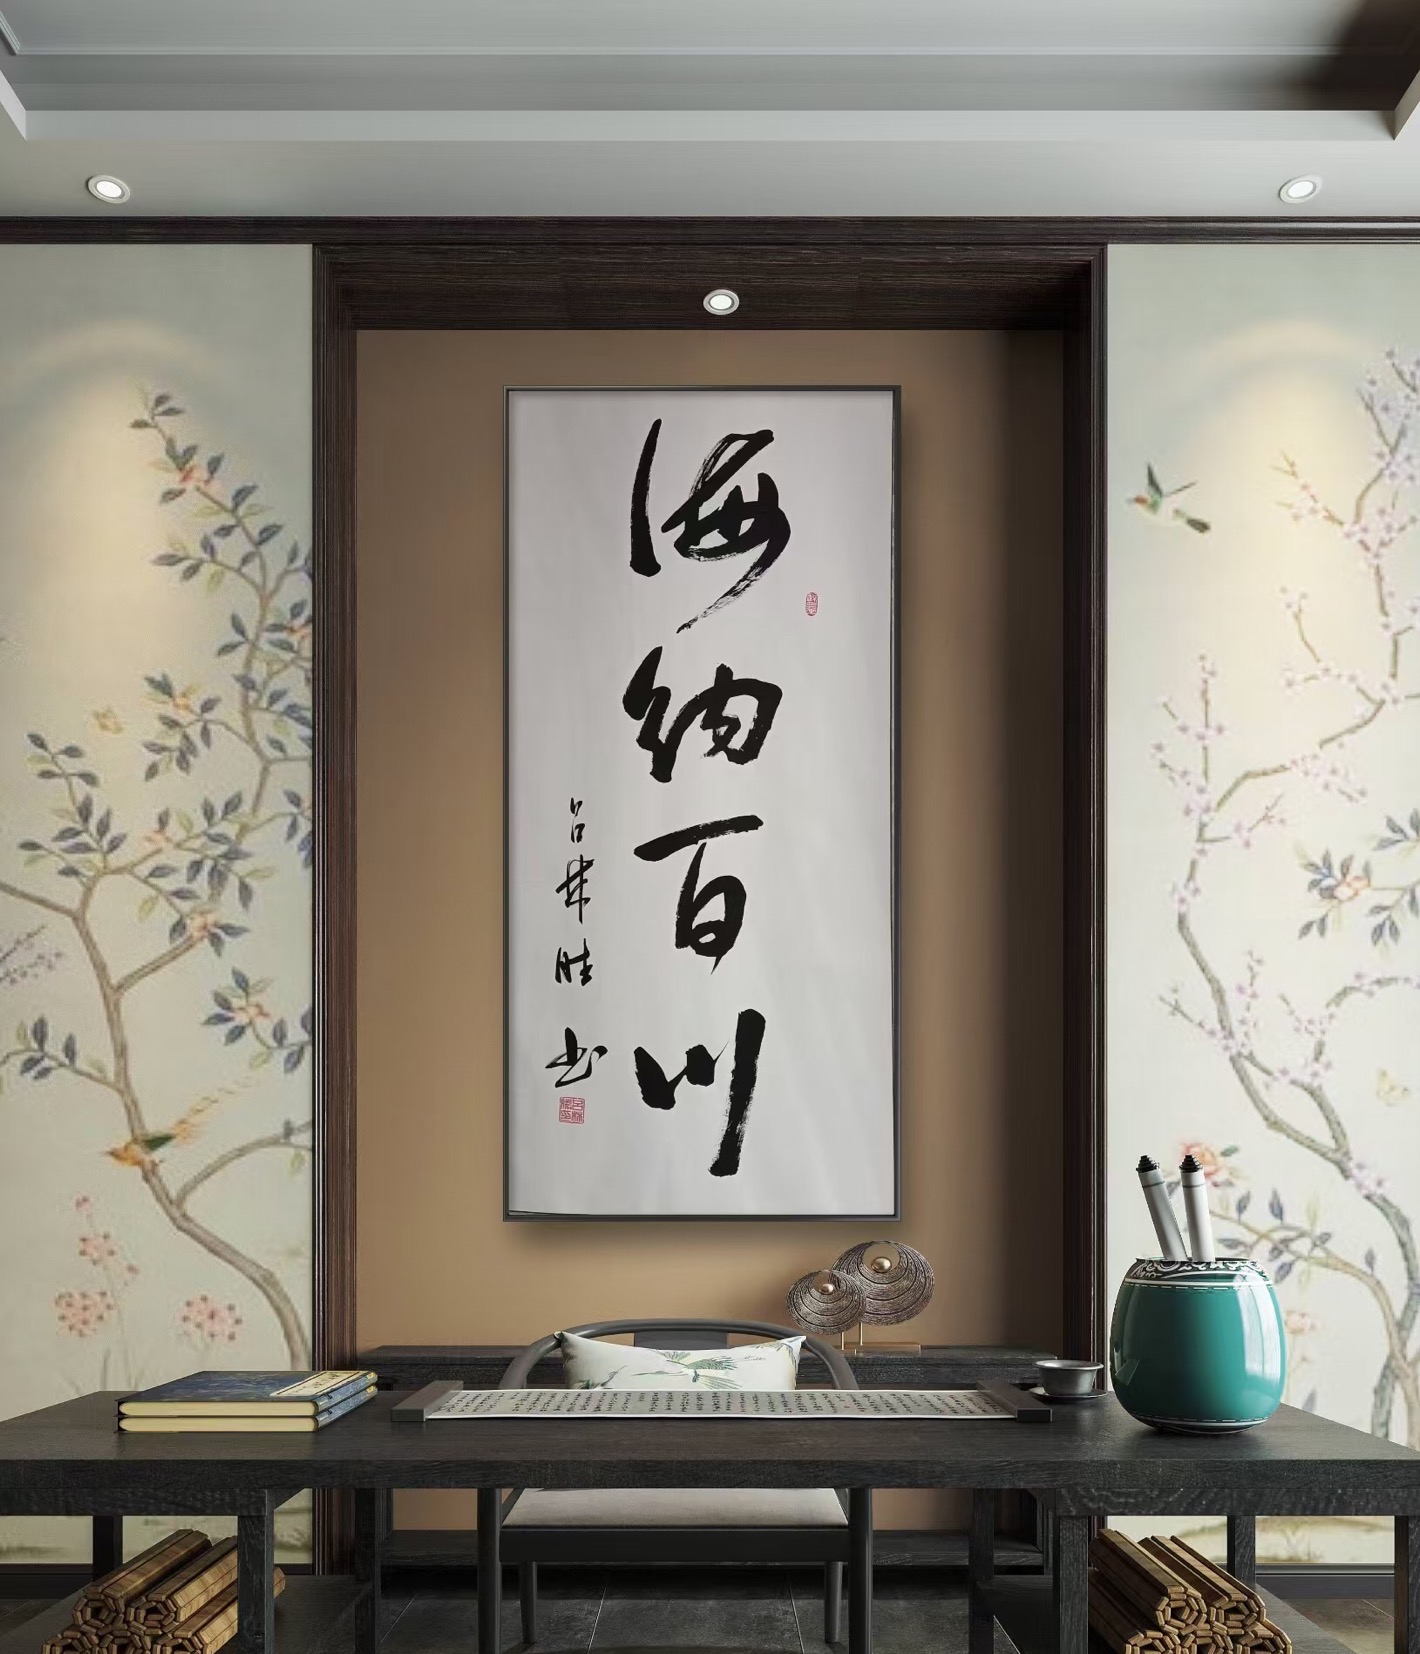 海纳百川
吕林胜书